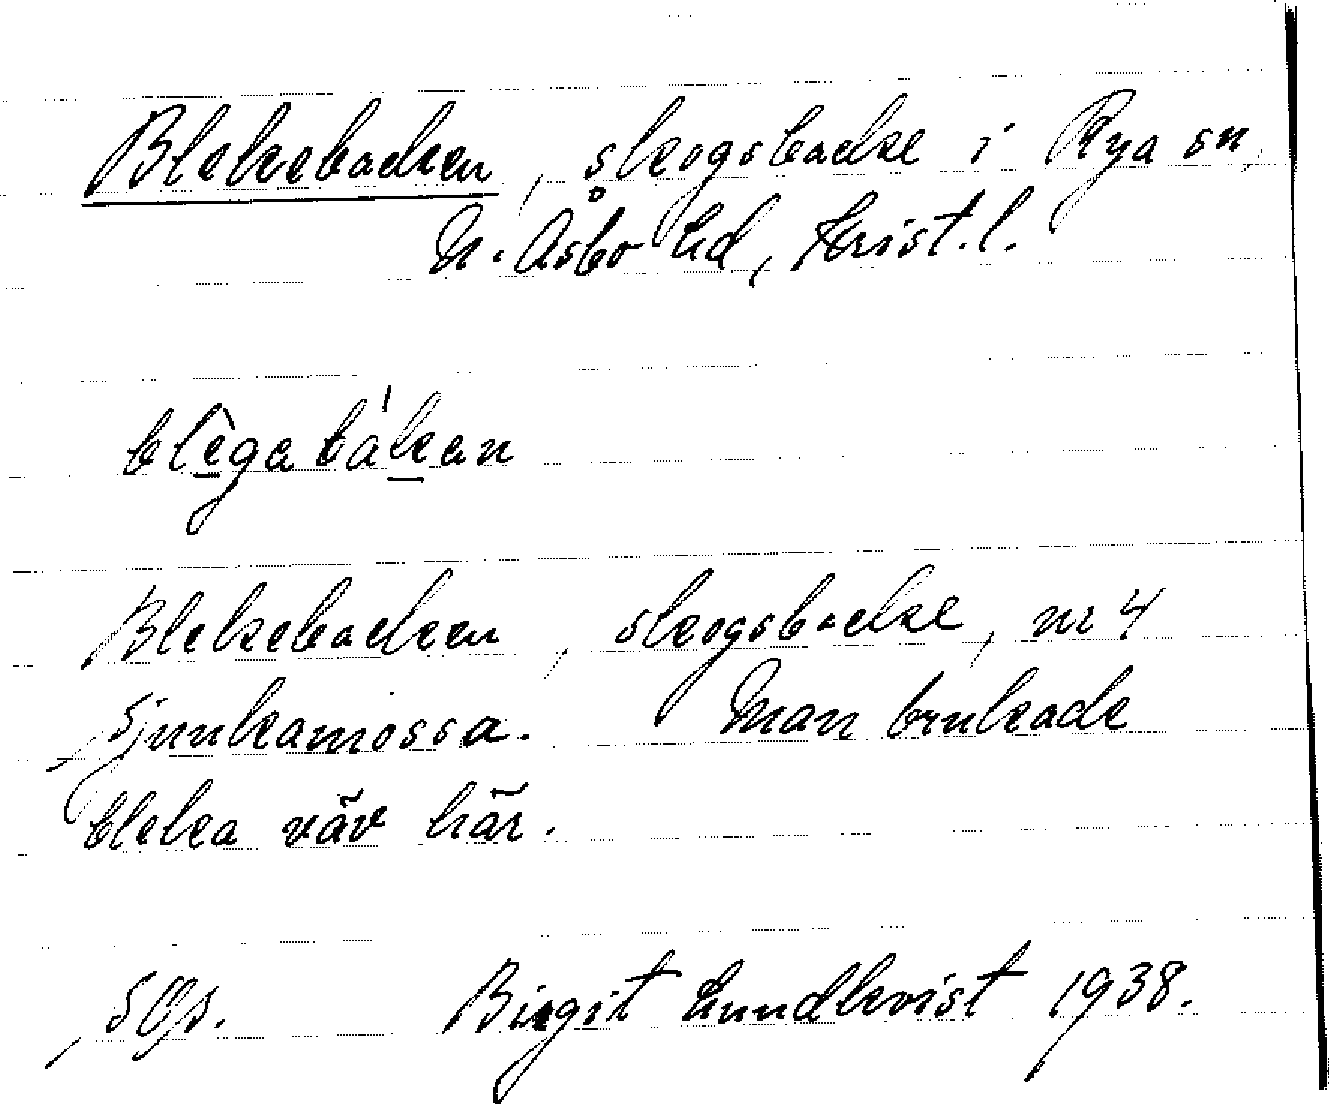 Blekebacken, skogsbacke i Rya sn,
N. Åsbo hd, Krist. l.
blègabákan
Blekebacken, skogsbacke, nr 4
Sjunkamossa. Man brukade
bleka väv här.
Birgit Lundkvist 1938.